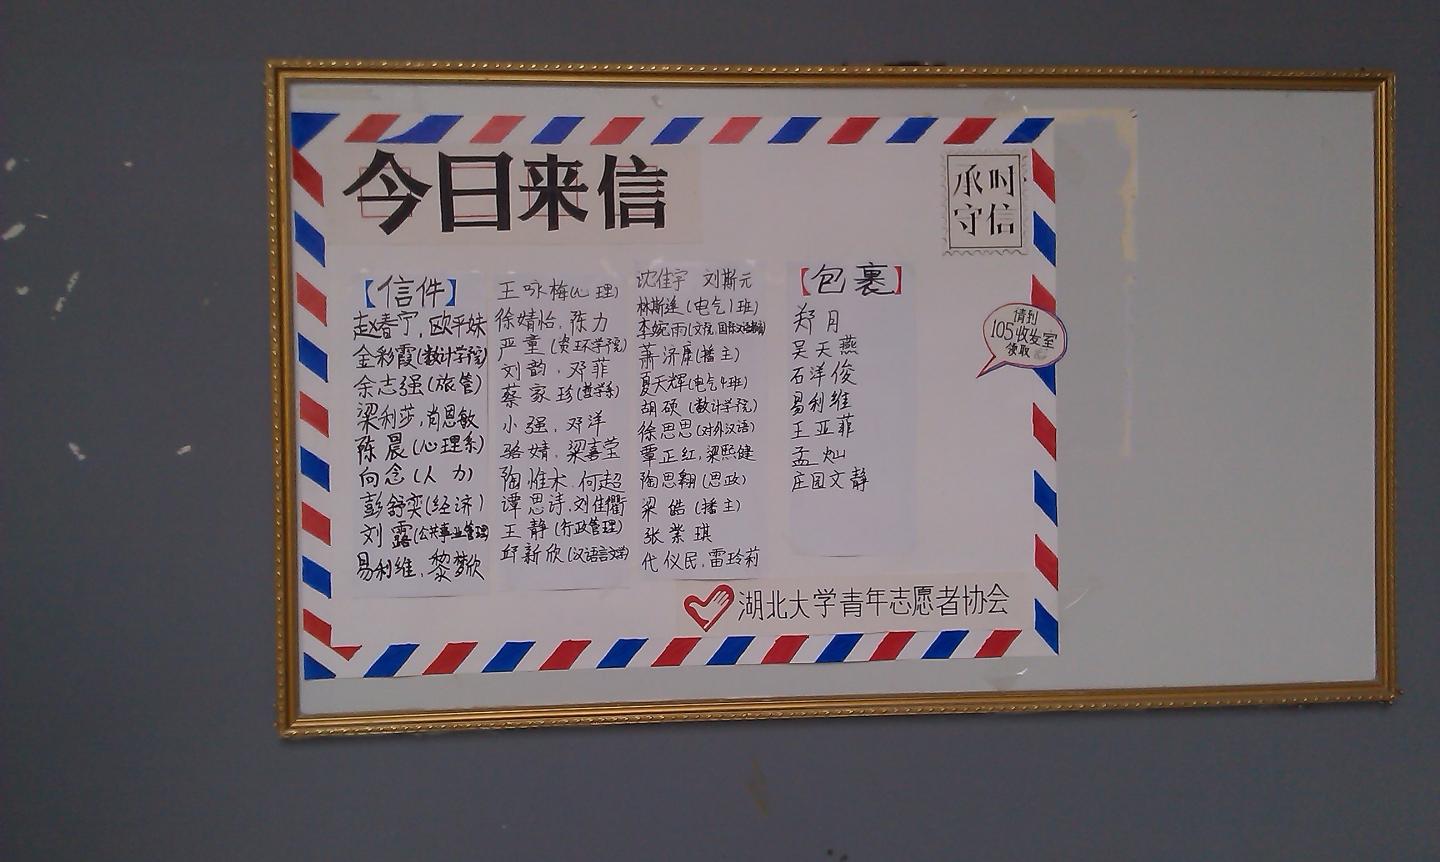 今日来信
承时
守信
【信件】
赵春宁、欧平妹
金彩霞(数计学院)
余志强(旅管)
梁利莎、肖恩敏
陈晨(心理系)
向念(人力)
彭舒奕(经济)
刘露(公共事业管理)
易利维、黎梦欣
王咏梅(心理)
徐婧怡、陈力
严童(资环学院)
刘韵、邓菲
蔡家珍(哲学系)
小强、邓洋
骆婧、梁嘉莹
陶惟木、何超
谭思诗、刘佳衢
王静(行政管理)
邱新欣(汉语言文学)
沈佳宇 刘斯元
林斯遥(电气1班)
李婉雨(文院,国际汉语教育)
萧济康(播主)
夏天辉(电气4班)
胡硕(数计学院)
徐思思(对外汉语)
覃正红、梁熙健
陶思翔(思政)
梁皓(播主)
张紫琪
代仪民、雷玲莉
【包裹】
郑月
吴天燕
石洋俊
易利维
王亚菲
孟灿
庄园文静
请到
105收发室
领取
湖北大学青年志愿者协会